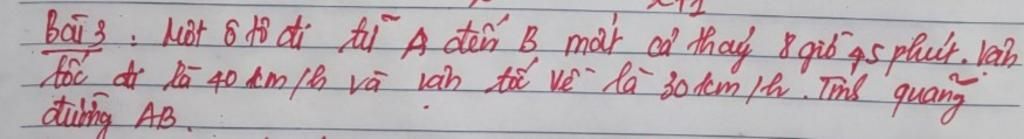 Bài 3: Một ô tô đi từ A đến B mất cả thảy 8 giờ 45 phút. Vận
tốc đi là 40 km/h và vận tốc về là 30 km/h. Tính quãng
đường AB.